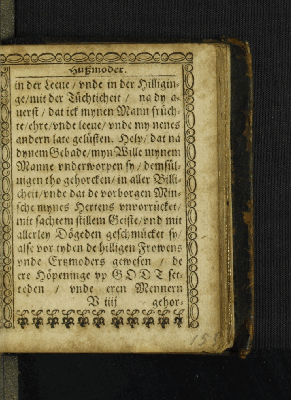 Hußmoder.
in der Leene / vnde in der Hilligin-
ge / mit der Tüchticheit / na dy a-
uerst / dat ick mynen Mann früch-
te / ehre / vnde leene / vnde my nenes
andern late gelüsten. Help / dat na
dynem Gebade / myn Wille mynem
Manne vnderworpen sy / demsül-
uigen tho gehorcken / in aller Billi-
cheit / vnde dat de vorborgen Min-
sche mynes Hertens vnvorrücket /
mit sachtem stillem Geiste / vnd mit
allerley Dögeden geschmücket sy /
alse vor tyden de hilligen Frowens
vnde Ertzmoders gewesen / de
ere Höpeninge vp GODT set-
teden / vnde eren Mennern
V iiij gehor-